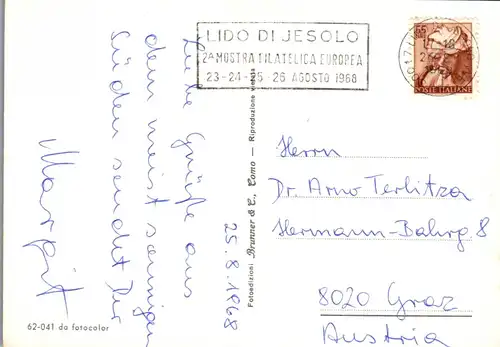 LIDO DI JESOLO
2ª MOSTRA FILATELICA EUROPEA
23-24-25-26 AGOSTO 1968
POSTE ITALIANE
25.8.1968
Liebe Grüße aus
dem meist sonnigen
Süden sendet Dir
Margit
Fotoedizioni Brunner & C., Como — Riproduzione vietata
Herrn
Dr. Arno Terlitza
Hermann-Bahrg 8
8020 Graz
Austria
62-041 da fotocolor